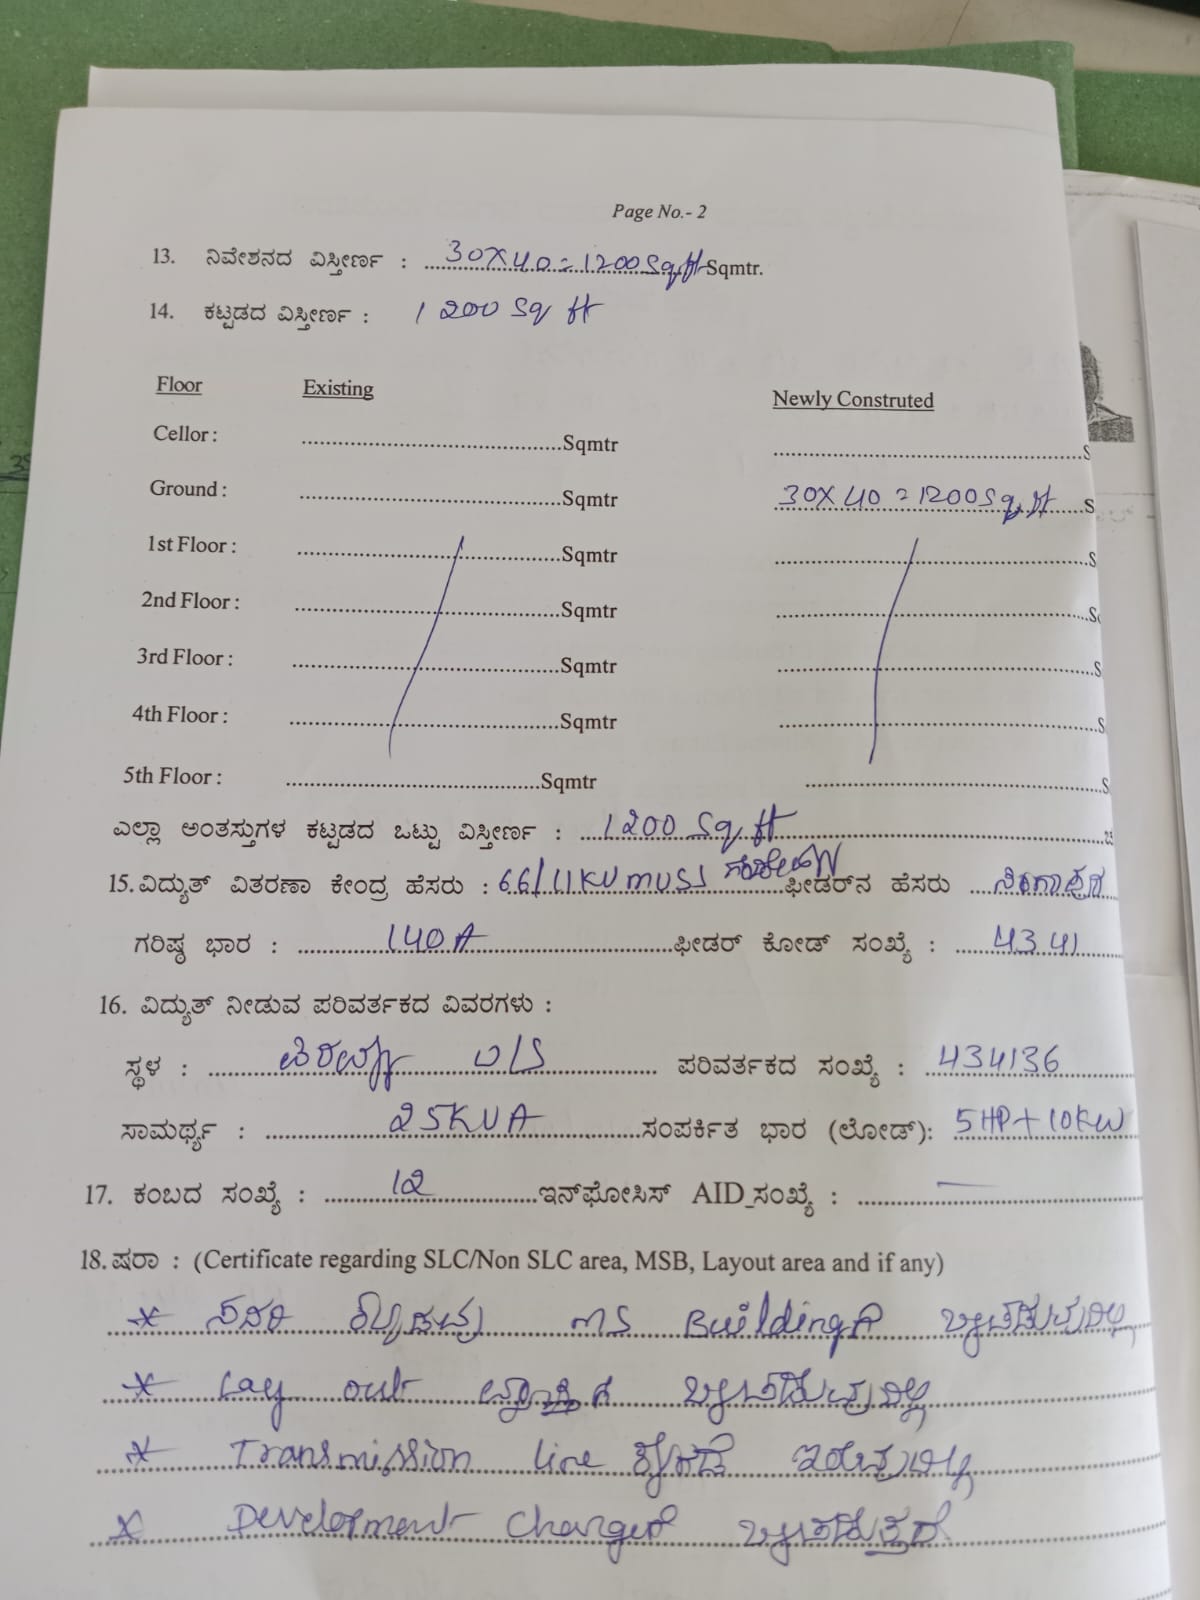 Page No.- 2
13. ನಿವೇಶನದ ವಿಸ್ತೀರ್ಣ : 30X40=1200Sq.ft Sqmtr.
14. ಕಟ್ಟಡದ ವಿಸ್ತೀರ್ಣ : 1200 Sq ft
Floor Existing Newly Construted
Cellor : Sqmtr S
Ground : Sqmtr 30X40=1200Sq.ft S
1st Floor : Sqmtr S
2nd Floor : Sqmtr S
3rd Floor : Sqmtr S
4th Floor : Sqmtr S
5th Floor : Sqmtr S
ಎಲ್ಲಾ ಅಂತಸ್ತುಗಳ ಕಟ್ಟಡದ ಒಟ್ಟು ವಿಸ್ತೀರ್ಣ : 1200 Sq ft
15. ವಿದ್ಯುತ್ ವಿತರಣಾ ಕೇಂದ್ರ ಹೆಸರು : 66/11KV MUSS ಫೀಡರ್‌ನ ಹೆಸರು
ಗರಿಷ್ಠ ಭಾರ : 140A ಫೀಡರ್ ಕೋಡ್ ಸಂಖ್ಯೆ : 4341
16. ವಿದ್ಯುತ್ ನೀಡುವ ಪರಿವರ್ತಕದ ವಿವರಗಳು :
ಸ್ಥಳ : ಪರಿವರ್ತಕದ ಸಂಖ್ಯೆ : 434136
ಸಾಮರ್ಥ್ಯ : 25KVA ಸಂಪರ್ಕಿತ ಭಾರ (ಲೋಡ್): 5HP+10KW
17. ಕಂಬದ ಸಂಖ್ಯೆ : 12 ಇನ್‌ಫೋಸಿಸ್ AID_ಸಂಖ್ಯೆ : —
18. ಷರಾ : (Certificate regarding SLC/Non SLC area, MSB, Layout area and if any)
* ಸದರಿ ಕಟ್ಟಡವು MS Buildingಗೆ ಒಳಪಡುವುದಿಲ್ಲ
* Lay out ವ್ಯಾಪ್ತಿಗೆ ಒಳಪಡುವುದಿಲ್ಲ
* Transmission line ಕೆಳಗಡೆ ಇರುವುದಿಲ್ಲ
* Development Chargeಗೆ ಒಳಪಡುತ್ತದೆ